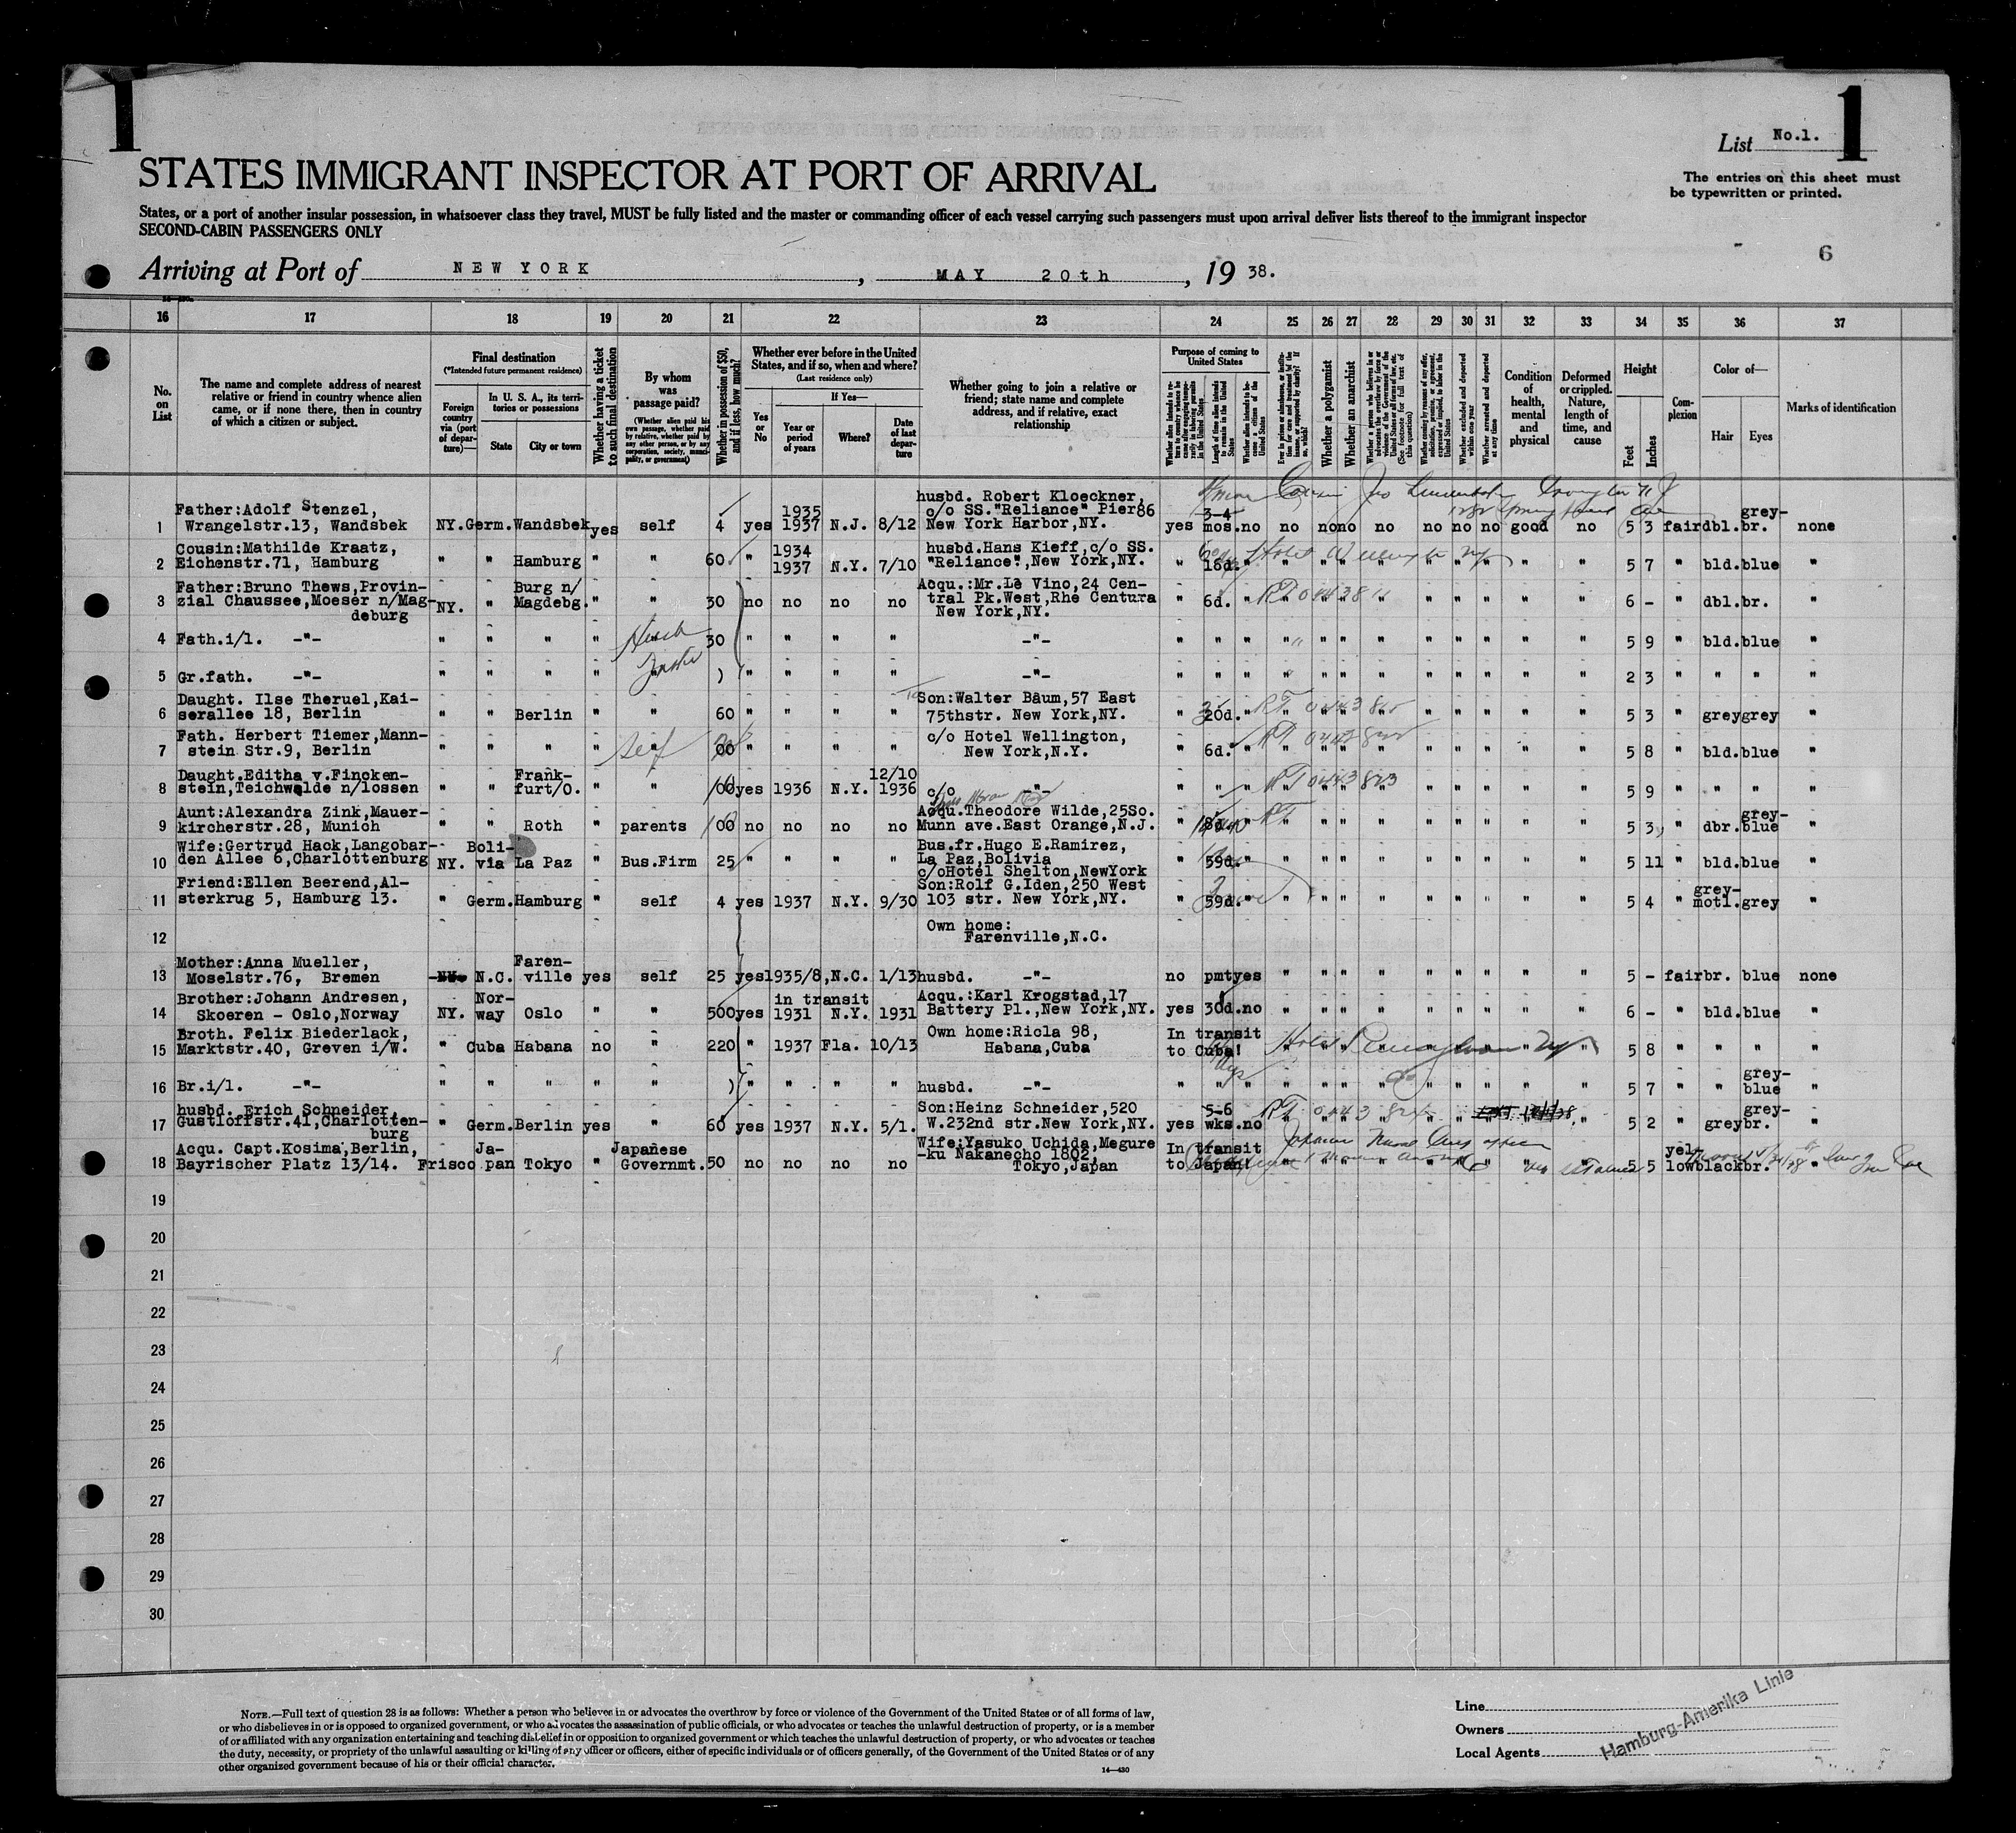 1
1
List No.1.
STATES IMMIGRANT INSPECTOR AT PORT OF ARRIVAL
The entries on this sheet must
be typewritten or printed.
States, or a port of another insular possession, in whatsoever class they travel, MUST be fully listed and the master or commanding officer of each vessel carrying such passengers must upon arrival deliver lists thereof to the immigrant inspector
SECOND-CABIN PASSENGERS ONLY
6
Arriving at Port of NEW YORK, MAY 20th, 19 38.
16 17 18 19 20 21 22 23 24 25 26 27 28 29 30 31 32 33 34 35 36 37
No. on List
The name and complete address of nearest relative or friend in country whence alien came, or if none there, then in country of which a citizen or subject.
Final destination
(*Intended future permanent residence)
Foreign country via (port of departure)—
In U. S. A., its territories or possessions
State
City or town
Whether having a ticket to such final destination
By whom was passage paid?
(Whether alien paid his own passage, whether paid by relative, whether paid by any other person, or by any corporation, society, municipality, or government)
Whether in possession of $50, and if less, how much?
Whether ever before in the United States, and if so, when and where?
(Last residence only)
Yes or No
If Yes—
Year or period of years
Where?
Date of last departure
Whether going to join a relative or friend; state name and complete address, and if relative, exact relationship
Purpose of coming to United States
Whether alien intends to return to country whence he came after engaging temporarily in laboring pursuits in the United States
Length of time alien intends to remain in the United States
Whether alien intends to become a citizen of the United States
Ever in prison or almshouse, or institution for care and treatment of the insane, or supported by charity? If so, which?
Whether a polygamist
Whether an anarchist
Whether a person who believes in or advocates the overthrow by force or violence of the Government of the United States or all forms of law, etc. (See footnote for full text of this question)
Whether coming by reason of any offer, solicitation, promise, or agreement, expressed or implied, to labor in the United States
Whether excluded and deported within one year
Whether arrested and deported at any time
Condition of health, mental and physical
Deformed or crippled. Nature, length of time, and cause
Height
Feet
Inches
Complexion
Color of—
Hair
Eyes
Marks of identification
1 Father:Adolf Stenzel, Wrangelstr.13, Wandsbek NY. Germ. Wandsbek yes self 4 yes 1935 1937 N.J. 8/12 husbd. Robert Kloeckner, c/o SS."Reliance" Pier86 New York Harbor,NY. yes 3-4 mos. no no no no no no no no good no 5 3 fair dbl. grey-br. none
2 Cousin:Mathilde Kraatz, Eichenstr.71, Hamburg " " Hamburg " " 60 " 1934 1937 N.Y. 7/10 husbd.Hans Kieff,c/o SS. "Reliance",New York,NY. " 18d. " " " " " " " " " " 5 7 " bld. blue "
3 Father:Bruno Thews,Provinzial Chaussee,Moeser n/Magdeburg NY. " Burg n/ Magdebg. " " 30 no no no no Acqu.:Mr.Le Vino,24 Central Pk.West,Rhe Centura New York,NY. " 6d. " RT 0443811 " " " " " " " " " 6 - " dbl. br. "
4 Fath.i/l. -"- " " " " " 30 " " " " -"- " " " " " " " " " " " " 5 9 " bld. blue "
5 Gr.fath. -"- " " " " " ) " " " " -"- " " " " " " " " " " " " 2 3 " " " "
6 Daught. Ilse Theruel,Kaiserallee 18, Berlin " " Berlin " " 60 " " " " Son:Walter Baum,57 East 75thstr. New York,NY. " 20d. " " " " " " " " " " 5 3 " grey grey "
7 Fath. Herbert Tiemer,Mannstein Str.9, Berlin " " " " self " " " " c/o Hotel Wellington, New York,N.Y. " 6d. " " " " " " " " " " 5 8 " bld. blue "
8 Daught.Editha v.Finckenstein,Teichwalde n/lossen " " Frankfurt/O. " " 100 yes 1936 N.Y. 12/10 1936 c/o -"- " " " RT 0443823 " " " " " " " " 5 9 " " " "
9 Aunt:Alexandra Zink,Mauerkircherstr.28, Munich " " Roth " parents 100 no no no no Acqu.Theodore Wilde,25So. Munn ave.East Orange,N.J. " " RT " " " " " " " " 5 3 " dbr. grey-blue "
10 Wife:Gertrud Hack,Langobarden Allee 6,Charlottenburg NY. Bolivia La Paz " Bus.Firm 25 " " " " Bus.fr.Hugo E.Ramirez, La Paz,Bolivia c/oHotel Shelton,NewYork " 59d. " " " " " " " " " " 5 11 " bld. blue "
11 Friend:Ellen Beerend,Alsterkrug 5, Hamburg 13. " Germ. Hamburg " self 4 yes 1937 N.Y. 9/30 Son:Rolf G.Iden,250 West 103 str. New York,NY. " 59d. " " " " " " " " " " 5 4 " grey-motl. grey "
12 Own home: Farenville,N.C.
13 Mother:Anna Mueller, Moselstr.76, Bremen N.C. Farenville yes self 25 yes 1935/8, N.C. 1/13 husbd. -"- no pmt yes " " " " " " " " " 5 - fair br. blue none
14 Brother:Johann Andresen, Skoeren - Oslo,Norway NY. Norway Oslo " " 500 yes in transit 1931 N.Y. 1931 Acqu.:Karl Krogstad,17 Battery Pl.,New York,NY. yes 30d. no " " " " " " " " " 6 - " bld. blue "
15 Broth. Felix Biederlack, Marktstr.40, Greven i/W. " Cuba Habana no " 220 " 1937 Fla. 10/13 Own home:Ricla 98, Habana,Cuba In transit to Cuba! " " " " " " " " " 5 8 " " " "
16 Br.i/l. -"- " " " " " ) " " " " husbd. -"- " " " " " " " " " " " " 5 7 " " grey-blue "
17 husbd. Erich Schneider, Gustloffstr.41,Charlottenburg " Germ. Berlin yes " 60 yes 1937 N.Y. 5/1. Son:Heinz Schneider,520 W.232nd str.New York,NY. yes 5-6 wks. no " " " " " " " " 5 2 " grey grey-br. "
18 Acqu. Capt.Kosima,Berlin, Bayrischer Platz 13/14. Frisco Japan Tokyo " Japanese Governmt. 50 no no no no Wife:Yasuko Uchida,Megure-ku Nakanecho 1802, Tokyo,Japan In transit to Japan! " " " " " " 5 5 yellow black br. "
19
20
21
22
23
24
25
26
27
28
29
30
NOTE.—Full text of question 28 is as follows: Whether a person who believes in or advocates the overthrow by force or violence of the Government of the United States or of all forms of law,
or who disbelieves in or is opposed to organized government, or who advocates the assassination of public officials, or who advocates or teaches the unlawful destruction of property, or is a member
of or affiliated with any organization entertaining and teaching disbelief in or opposition to organized government or which teaches the unlawful destruction of property, or who advocates or teaches
the duty, necessity, or propriety of the unlawful assaulting or killing of any officer or officers, either of specific individuals or of officers generally, of the Government of the United States or of any
other organized government because of his or their official character.
14—430
Line
Owners
Local Agents
Hamburg-Amerika Linie